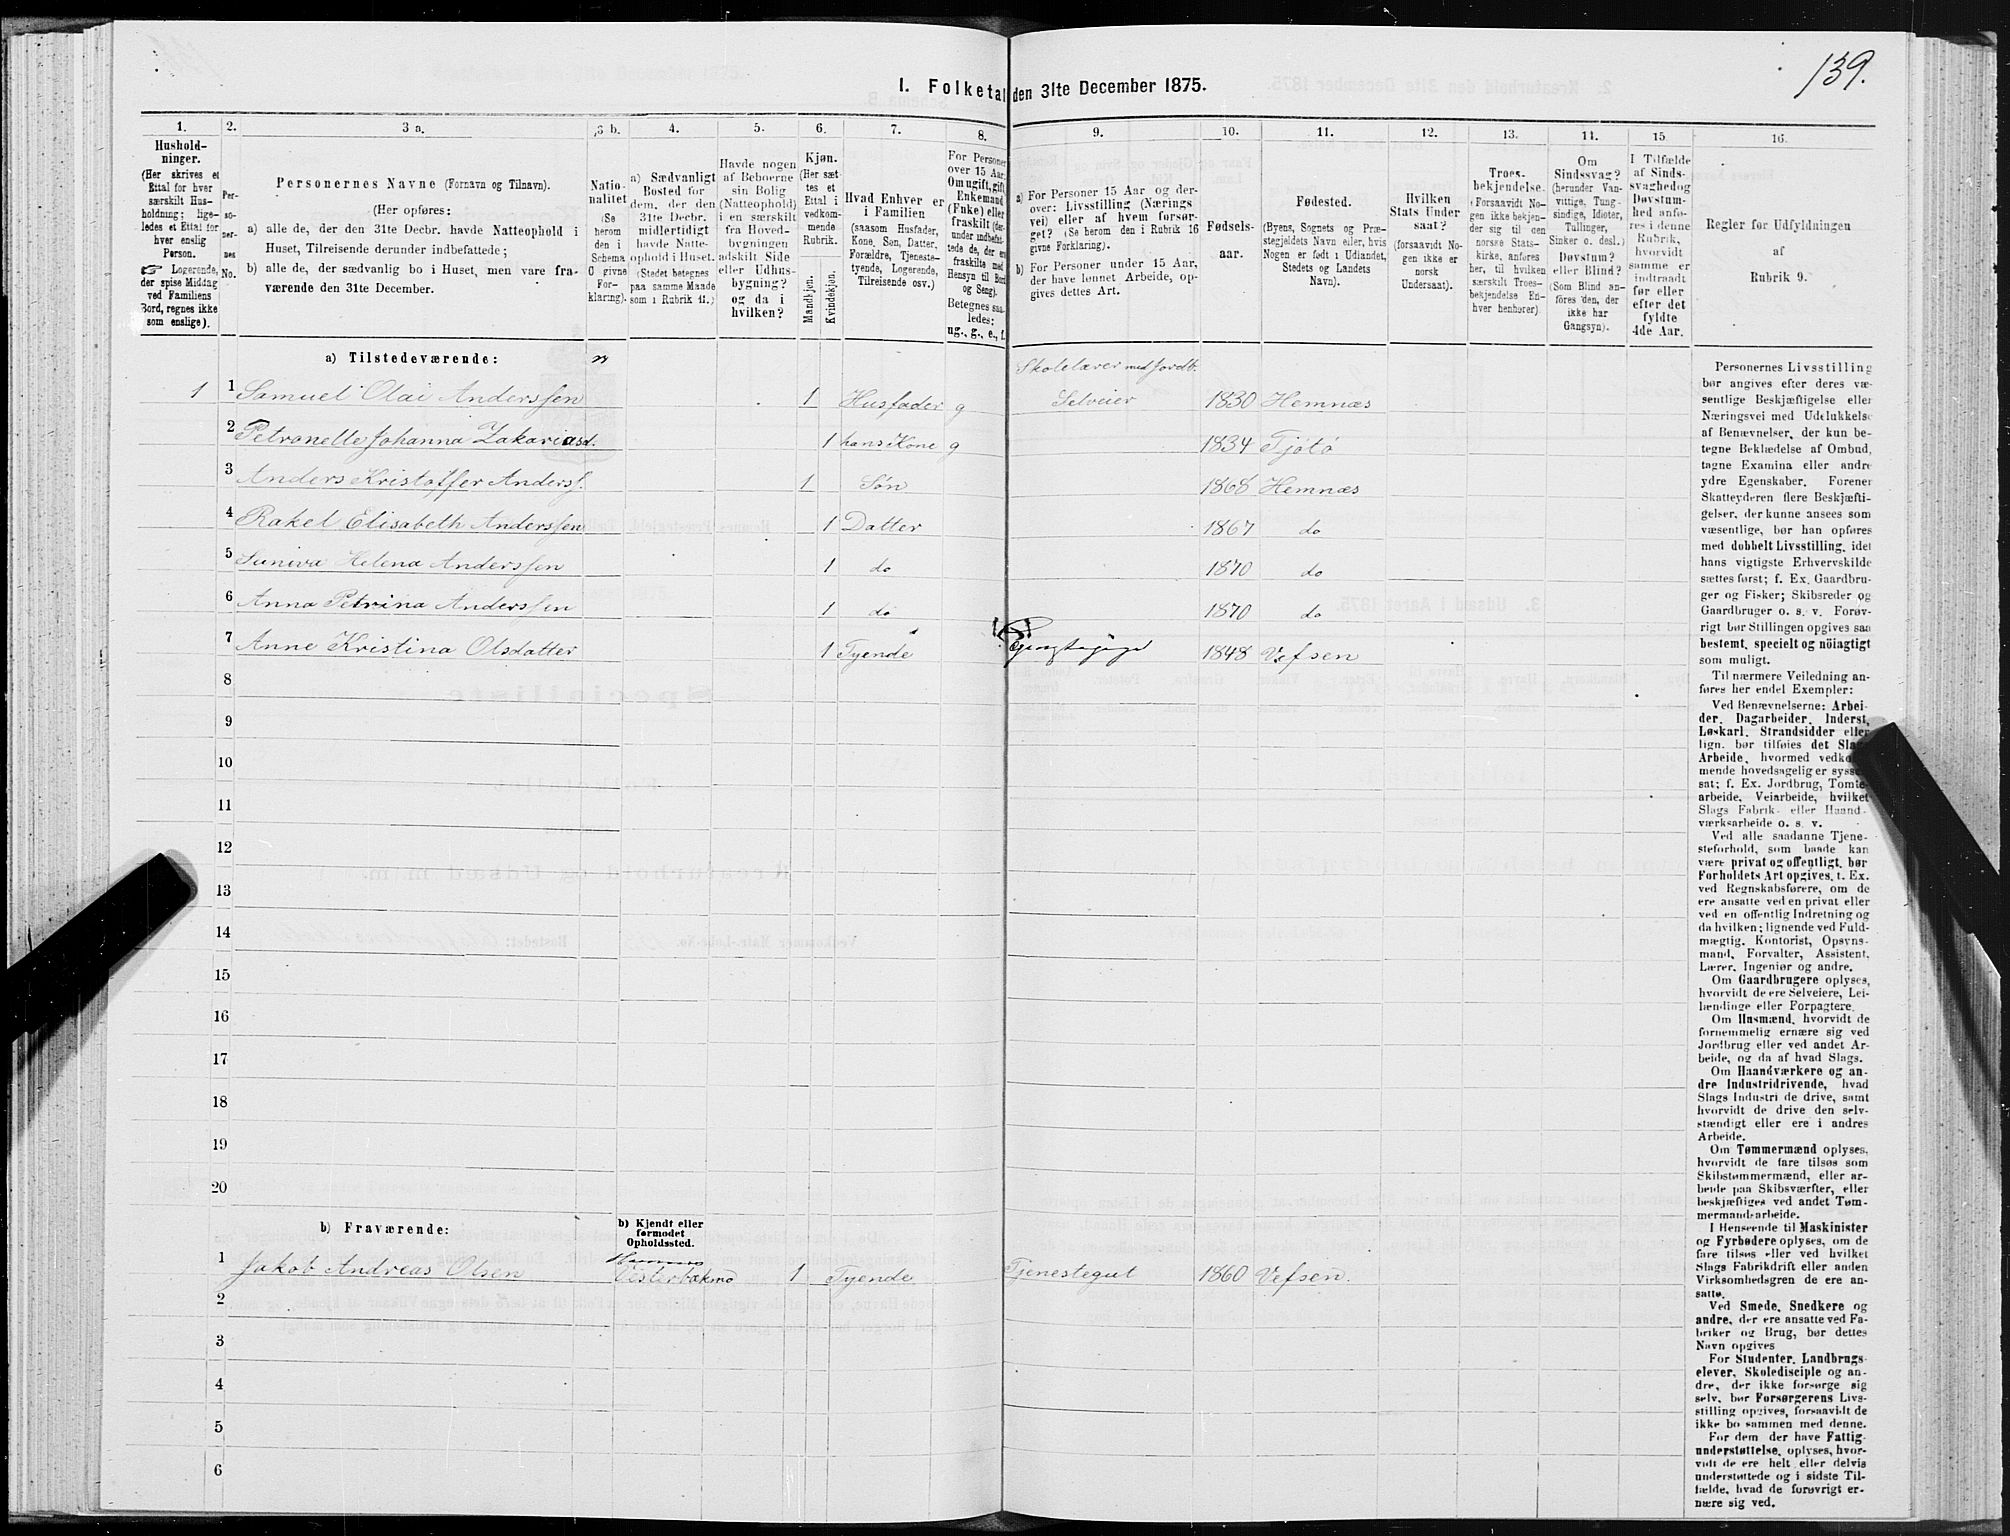 139.
I. Folketal den 31te December 1875.
1. 2. 3 a. 3 b. 4. 5. 6. 7. 8. 9. 10. 11. 12. 13. 14. 15. 16.
Hushold-
ninger.
(Her skrives et
Ettal for hver
særskilt Hus-
holdning; lige-
ledes et Ettal for
hver enslig
Person.
☞ Logerende,
der spise Middag
ved Familiens
Bord, regnes ikke
som enslige).
Per-
so-
ner-
nes
No.
Personernes Navne (Fornavn og Tilnavn).
(Her opføres:
a) alle de, der den 31te Decbr. havde Natteophold i
Huset, Tilreisende derunder indbefattede;
b) alle de, der sædvanlig bo i Huset, men vare fra-
værende den 31te December.
Natio-
nalitet
(Se
herom
den i
Schema
O givne
For-
klaring).
a) Sædvanligt
Bosted for
dem, der den
31te Decbr.
midlertidigt
havde Natte-
ophold i Huset.
(Stedet betegnes
paa samme Maade
som i Rubrik 11.)
Havde nogen
af Beboerne
sin Bolig
(Natteophold)
i en særskilt
fra Hoved-
bygningen
adskilt Side
eller Udhus-
bygning?
og da i
hvilken?
Kjøn.
(Her sæt-
tes et
Ettal i
vedkom-
mende
Rubrik.
Mandkjøn.
Kvindekjøn.
Hvad Enhver er
i Familien
(saasom Husfader,
Kone, Søn, Datter,
Forældre, Tjeneste-
tyende, Logerende,
Tilreisende osv.)
For Personer
over 15 Aar:
Om ugift, gift,
Enkemand
(Enke) eller
fraskilt (der-
under indbefat-
tede de, der ere
fraskilte med
Hensyn til Bord
og Seng).
Betegnes saa-
ledes:
ug., g., e., f.
a) For Personer 15 Aar og der-
over: Livsstilling (Nærings-
vei) eller af hvem forsør-
get? (Se herom den i Rubrik 16
givne Forklaring).
b) For Personer under 15 Aar,
der have lønnet Arbeide, op-
gives dettes Art.
Fødsels-
aar.
Fødested.
(Byens, Sognets og Præ-
stegjeldets Navn eller, hvis
Nogen er født i Udlandet,
Stedets og Landets
Navn).
Hvilken
Stats Under
saat?
(forsaavidt No-
gen ikke er
norsk
Undersaat).
Troes-
bekjendelse.
(Forsaavidt No-
gen ikke bekjen-
der sig til den
norske Stats-
kirke, anføres
her, til hvilken
særskilt Troes-
bekjendelse En-
hver henhører).
Om
Sindssvag?
(herunder Van-
vittige, Tung-
sindige, Idioter,
Tullinger,
Sinker o. desl.)
Døvstum?
eller Blind?
(Som Blind an-
føres den, der
ikke har
Gangsyn).
I Tilfælde
af Sinds-
svaghed og
Døvstum-
hed anfø-
res i denne
Rubrik,
hvorvidt
samme er
indtraadt
før eller
efter det
fyldte
4de Aar.
Regler for Udfyldningen
af
Rubrik 9.
a) Tilstedeværende: n
Skolelærer med Jordb.
1 1 Samuel Olai Anderssen 1 Husfader g Selveier 1830 Hemnæs
2 Petronelle Johanna Zakariasd. 1 hans Kone g 1834 Tjøtø
3 Anders Kristoffer Anderss. 1 Søn 1868 Hemnæs
4 Rakel Elisabeth Anderssen 1 Datter 1867 do
5 Suniva Helena Anderssen 1 do 1870 do
6 Anna Petrina Anderssen 1 do 1870 do
7 Anne Kristina Olsdatter 1 Tyende 1848 Vefsen
8
9
10
11
12
13
14
15
16
17
18
19
20
b) Fraværende:
b) Kjendt eller
formodet
Opholdssted.
1 Jakob Andreas Olsen Vesterbækmo 1 Tyende Tjenestegut 1860 Vefsen.
2
3
4
5
6
Personernes Livsstilling
bør angives efter deres væ-
sentlige Beskjæftigelse eller
Næringsvei med Udelukkelse
af Benævnelser, der kun be-
tegne Beklædelse af Ombud,
tagne Examina eller andre
ydre Egenskaber. Forener
Skatteyderen flere Beskjæfti-
gelser, der kunne ansees som
væsentlige, bør han opføres
med dobbelt Livsstilling, idet
hans vigtigste Erhvervskilde
sættes først; f. Ex. Gaardbru-
ger og Fisker; Skibsreder og
Gaardbruger o. s. v. Forøv-
rigt bør Stillingen opgives saa
bestemt, specielt og nöiagtigt
som muligt.
Til nærmere Veiledning an-
føres her endel Exempler:
Ved Benævnelserne: Arbei-
der, Dagarbeider, Inderst,
Løskarl, Strandsidder eller
lign. bør tilføies det Slags
Arbeide, hvormed vedkom-
mende hovedsagelig er syssel-
sat; f. Ex. Jordbrug, Tomte-
arbeide, Veiarbeide, hvilket
Slags Fabrik- eller Haand-
værksarbeide o. s. v.
Ved alle saadanne Tjene-
steforhold, som baade kan
være privat og offentligt, bør
Forholdets Art opgives, t. Ex.
ved Regnskabsførere, om de
ere ansatte ved en privat eller
ved en offentlig Indretning og
da hvilken; lignende ved Fuld-
mægtig, Kontorist, Opsyns-
mand, Forvalter, Assistent,
Lærer, Ingeniør og andre.
Om Gaardbrugere oplyses,
hvorvidt de ere Selveiere, Lei-
lændinge eller Forpagtere.
Om Husmænd, hvorvidt de
fornemmelig ernære sig ved
Jordbrug eller ved andet Ar-
beide, og da af hvad Slags.
Om Haandværkere og an-
dre Industridrivende, hvad
Slags Industri de drive, samt
hvorvidt de drive den selv-
stændigt eller ere i andres
Arbeide.
Om Tømmermænd oplyses,
hvorvidt de fare tilsøs som
Skibstømmermænd, eller ar-
beide paa Skibsværfter, eller
beskjæftiges ved andet Tøm-
mermandsarbeide.
I Henseende til Maskinister
og Fyrbødere oplyses, om de
fare tilsøs eller ved hvilket
Slags Fabrikdrift eller anden
Virksomhedsgren de ere an-
satte.
Ved Smede, Snedkere og
andre, der ere ansatte ved Fa-
briker og Brug, bør dettes
Navn opgives
For Studenter, Landbrugs-
elever, Skoledisciple og an-
dre, der ikke forsørge sig
selv, bør Forsørgerens Livs-
stilling opgives, forsaavidt de
ikke bo sammen med denne.
For dem, der have Fattig-
understøttelse, oplyses, hvor-
vidt de ere helt eller delvis
understøttede og i sidste Til-
fælde, hvad de forøvrigt er-
nære sig ved.